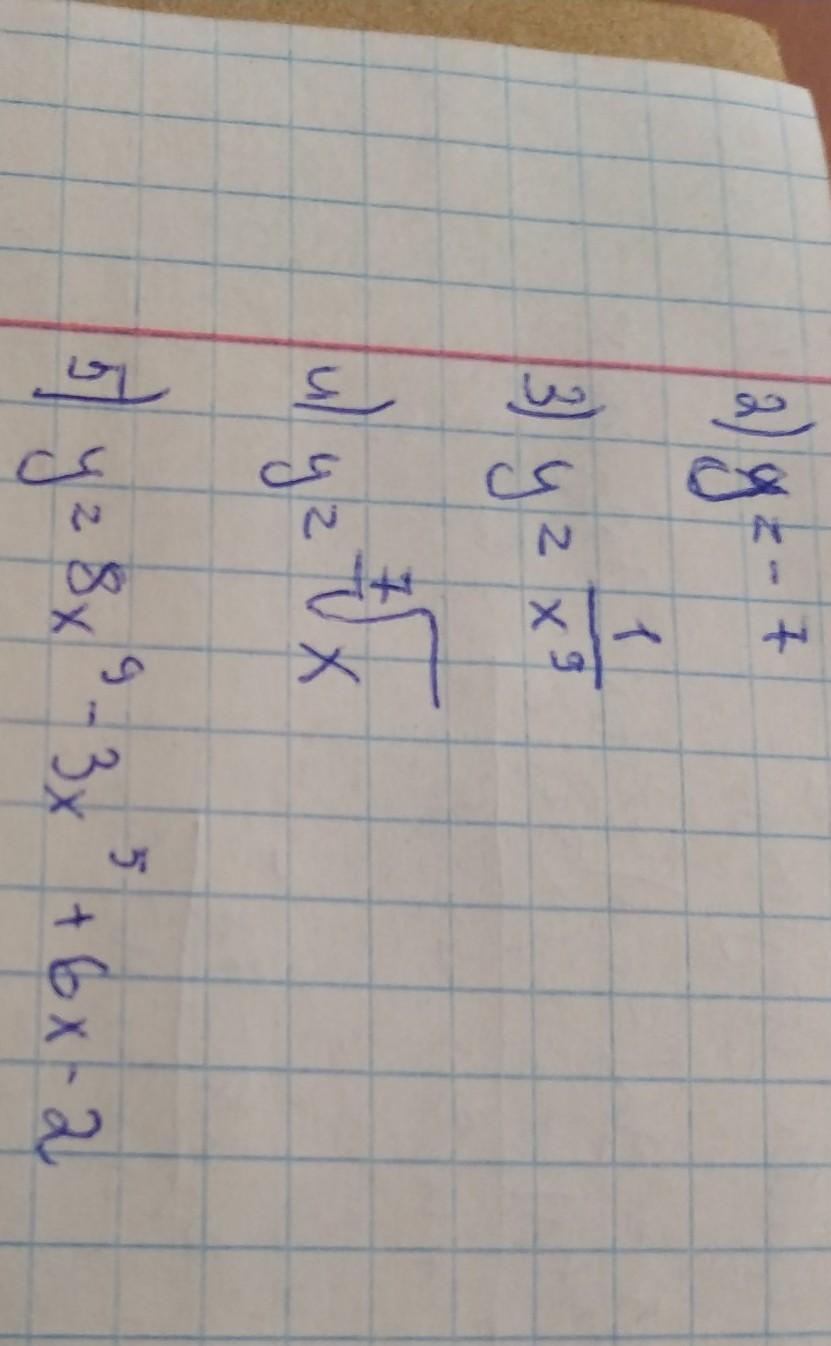 2) y = - 7
3) y = 1/x⁹
4) y = ⁷√x
5) y = 8x⁹ - 3x⁵ + 6x - 2